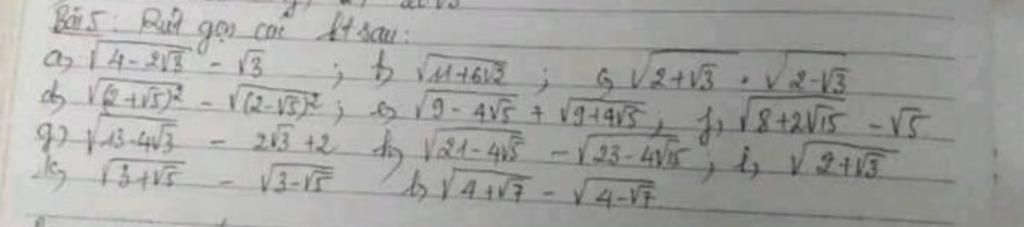 Bài 5: Rút gọn các bt sau:
a, √(4-2√3) - √3 ; b, √(11+6√2) ; c, √(2+√3) . √(2-√3)
d, √((2+√5)²) - √((2-√5)²) ; e, √(9-4√5) + √(9+4√5) ; f, √(8+2√15) - √5
g, √(13-4√3) - 2√3 +2 h, √(21-4√5) - √(23-4√15) ; i, √(2+√3)
k, √(3+√5) - √(3-√5) l, √(4+√7) - √(4-√7)